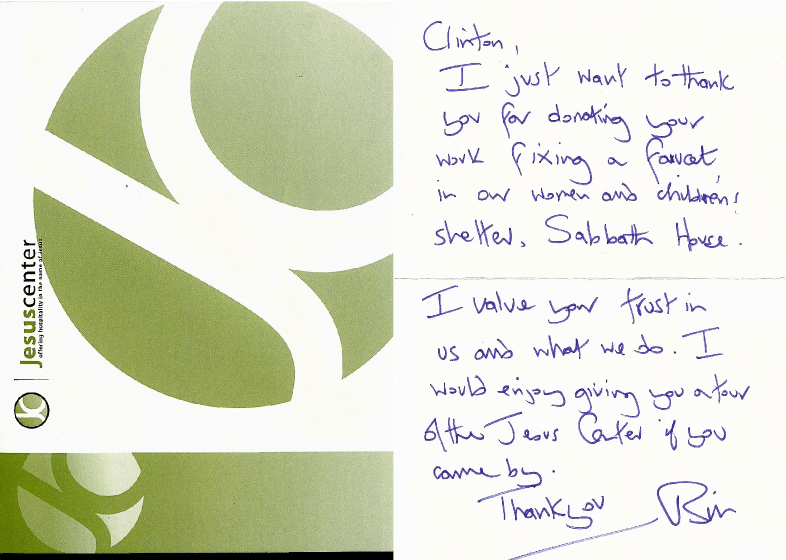 Jesuscenter
offering hospitality in the name of Jesus
JC
Clinton,
I just want to thank
you for donating your
work fixing a faucet,
in our women and childrens'
shelter, Sabbath House.
I value your trust in
us and what we do. I
would enjoy giving you a tour
of the Jesus Center if you
came by.
Thank you